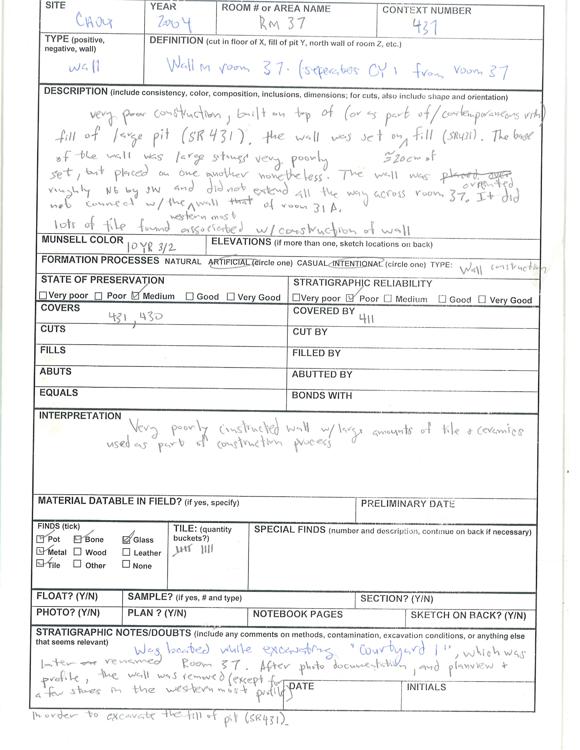 SITE YEAR ROOM # or AREA NAME CONTEXT NUMBER
2004 RM 37 437
TYPE (positive, negative, wall) DEFINITION (cut in floor of X, fill of pit Y, north wall of room Z, etc.)
wall Wall in room 37. (seperates CY 1 from room 37
DESCRIPTION (include consistency, color, composition, inclusions, dimensions; for cuts, also include shape and orientation)
very poor construction, built on top of (or as part of/contemporaneous with)
fill of large pit (SR431). the wall was set on fill (SR431). The base
of the wall was large stones very poorly ≈20cm of
set, but placed on one another nonetheless. The wall was placed over oriented
roughly NE by SW and did not extend all the way across room 37. It did
not connect w/ the western most wall that of room 31 A.
lots of tile found associated w/ construction of wall
MUNSELL COLOR 10 YR 3/2 ELEVATIONS (if more than one, sketch locations on back)
FORMATION PROCESSES NATURAL ARTIFICIAL (circle one) CASUAL INTENTIONAL (circle one) TYPE: Wall construction
STATE OF PRESERVATION STRATIGRAPHIC RELIABILITY
Very poor Poor Medium Good Very Good Very poor Poor Medium Good Very Good
COVERS 431, 430 COVERED BY 411
CUTS CUT BY
FILLS FILLED BY
ABUTS ABUTTED BY
EQUALS BONDS WITH
INTERPRETATION Very poorly constructed wall w/ large amounts of tile + ceramics
used as part of construction process
MATERIAL DATABLE IN FIELD? (if yes, specify) PRELIMINARY DATE
FINDS (tick) TILE: (quantity buckets?) SPECIAL FINDS (number and description, continue on back if necessary)
Pot Bone Glass
Metal Wood Leather
Tile Other None
FLOAT? (Y/N) SAMPLE? (if yes, # and type) SECTION? (Y/N)
PHOTO? (Y/N) PLAN ? (Y/N) NOTEBOOK PAGES SKETCH ON BACK? (Y/N)
STRATIGRAPHIC NOTES/DOUBTS (include any comments on methods, contamination, excavation conditions, or anything else
that seems relevant) Was located while excavating "Courtyard 1", which was
later renamed Room 37. After photo documentation, and planview +
profile, the wall was removed (except for
a few stones in the western most profile)
DATE INITIALS
in order to excavate the fill of pit (SR431).